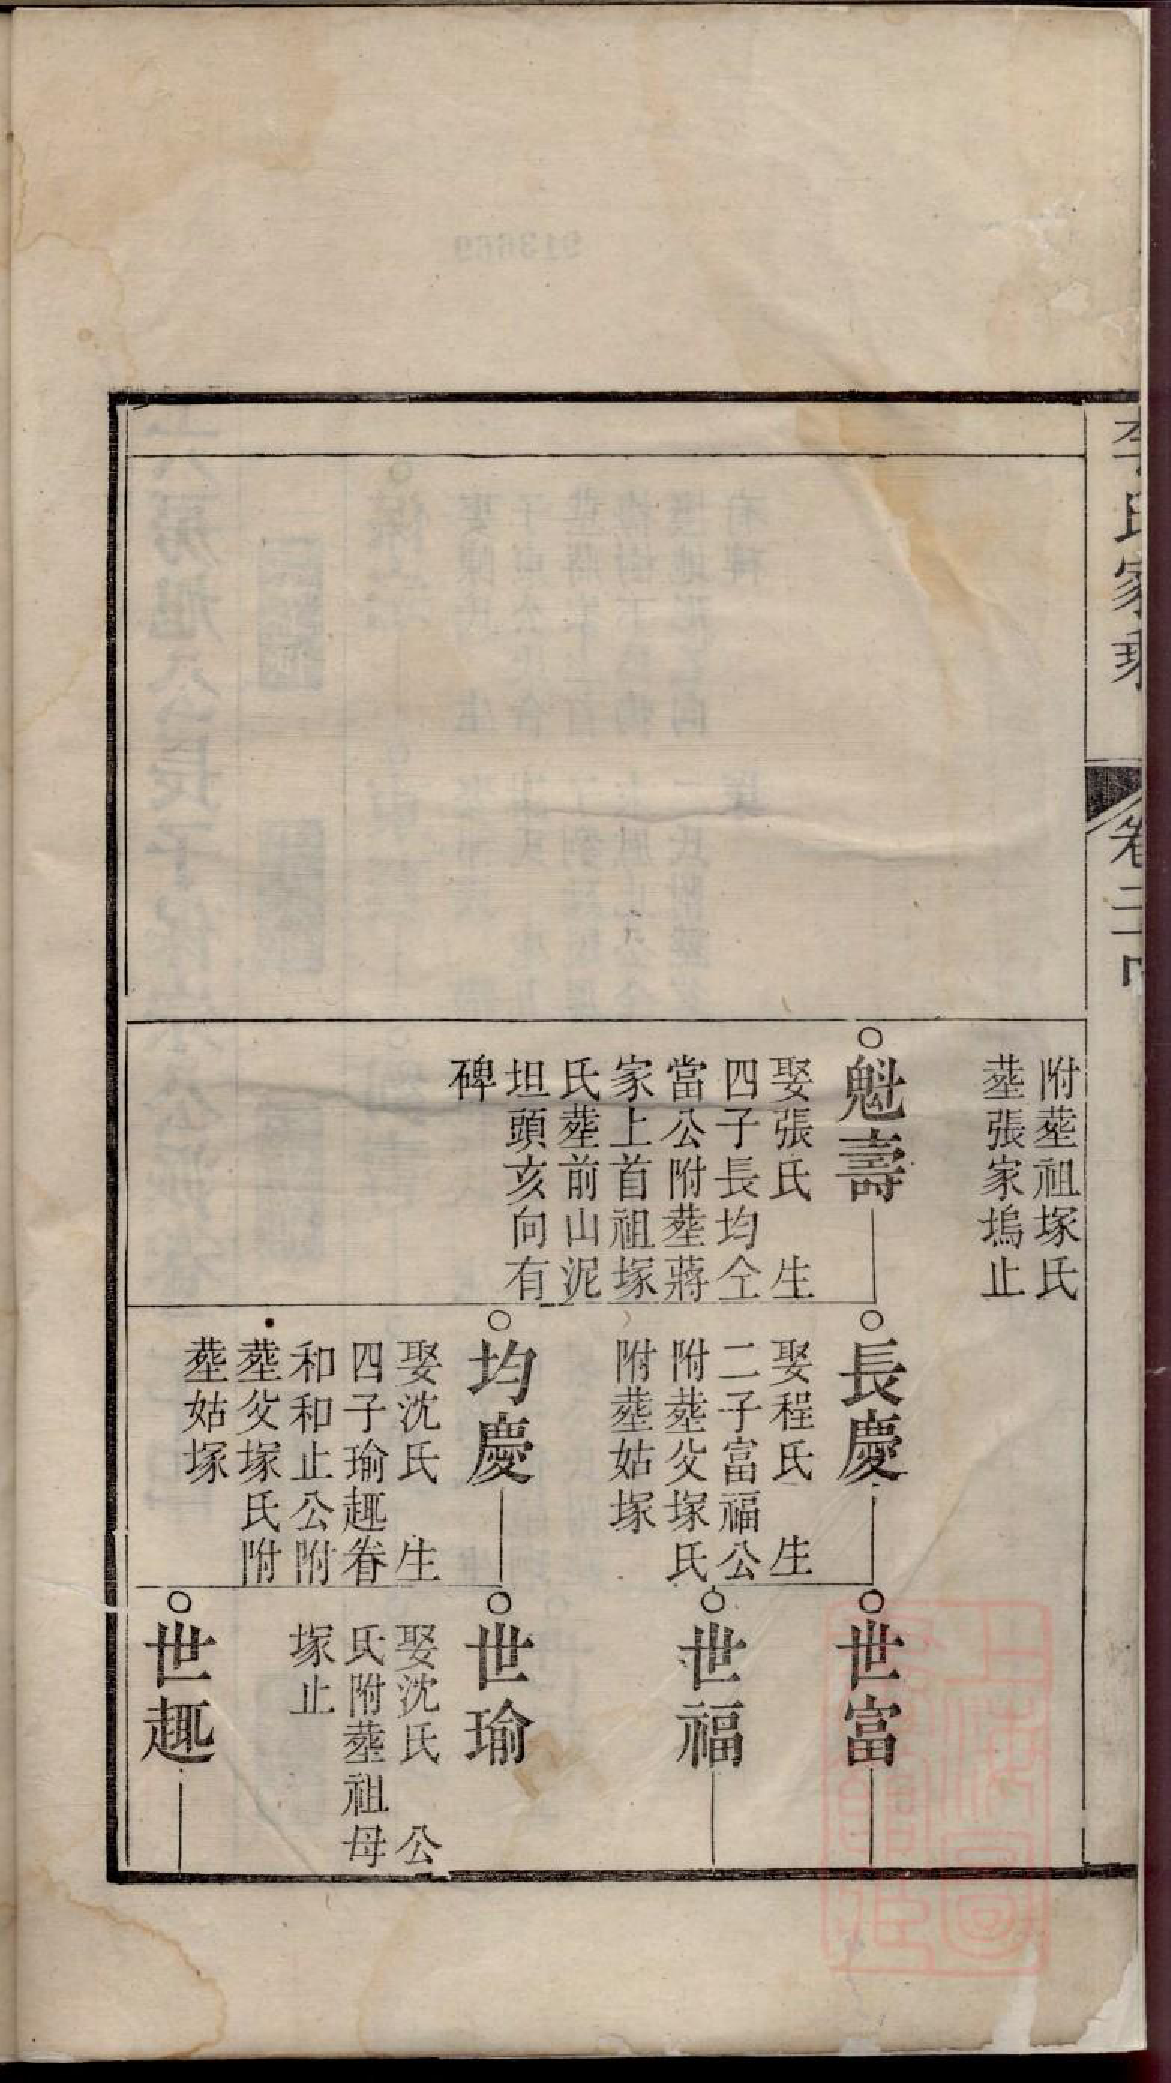 李氏家乘
卷二十四
附塟祖塚氏
塟張家塢止
魁壽
娶張氏　生
四子長均仝
當公附塟蔣
家上首祖塚
氏塟前山泥
坦頭亥向有
碑
長慶
娶程氏　生
二子富福公
附塟父塚氏
附塟姑塚
均慶
娶沈氏　生
四子瑜趣眷
和和止公附
塟父塚氏附
塟姑塚
世富
世福
世瑜
娶沈氏　公
氏附塟祖母
塚止
世趣